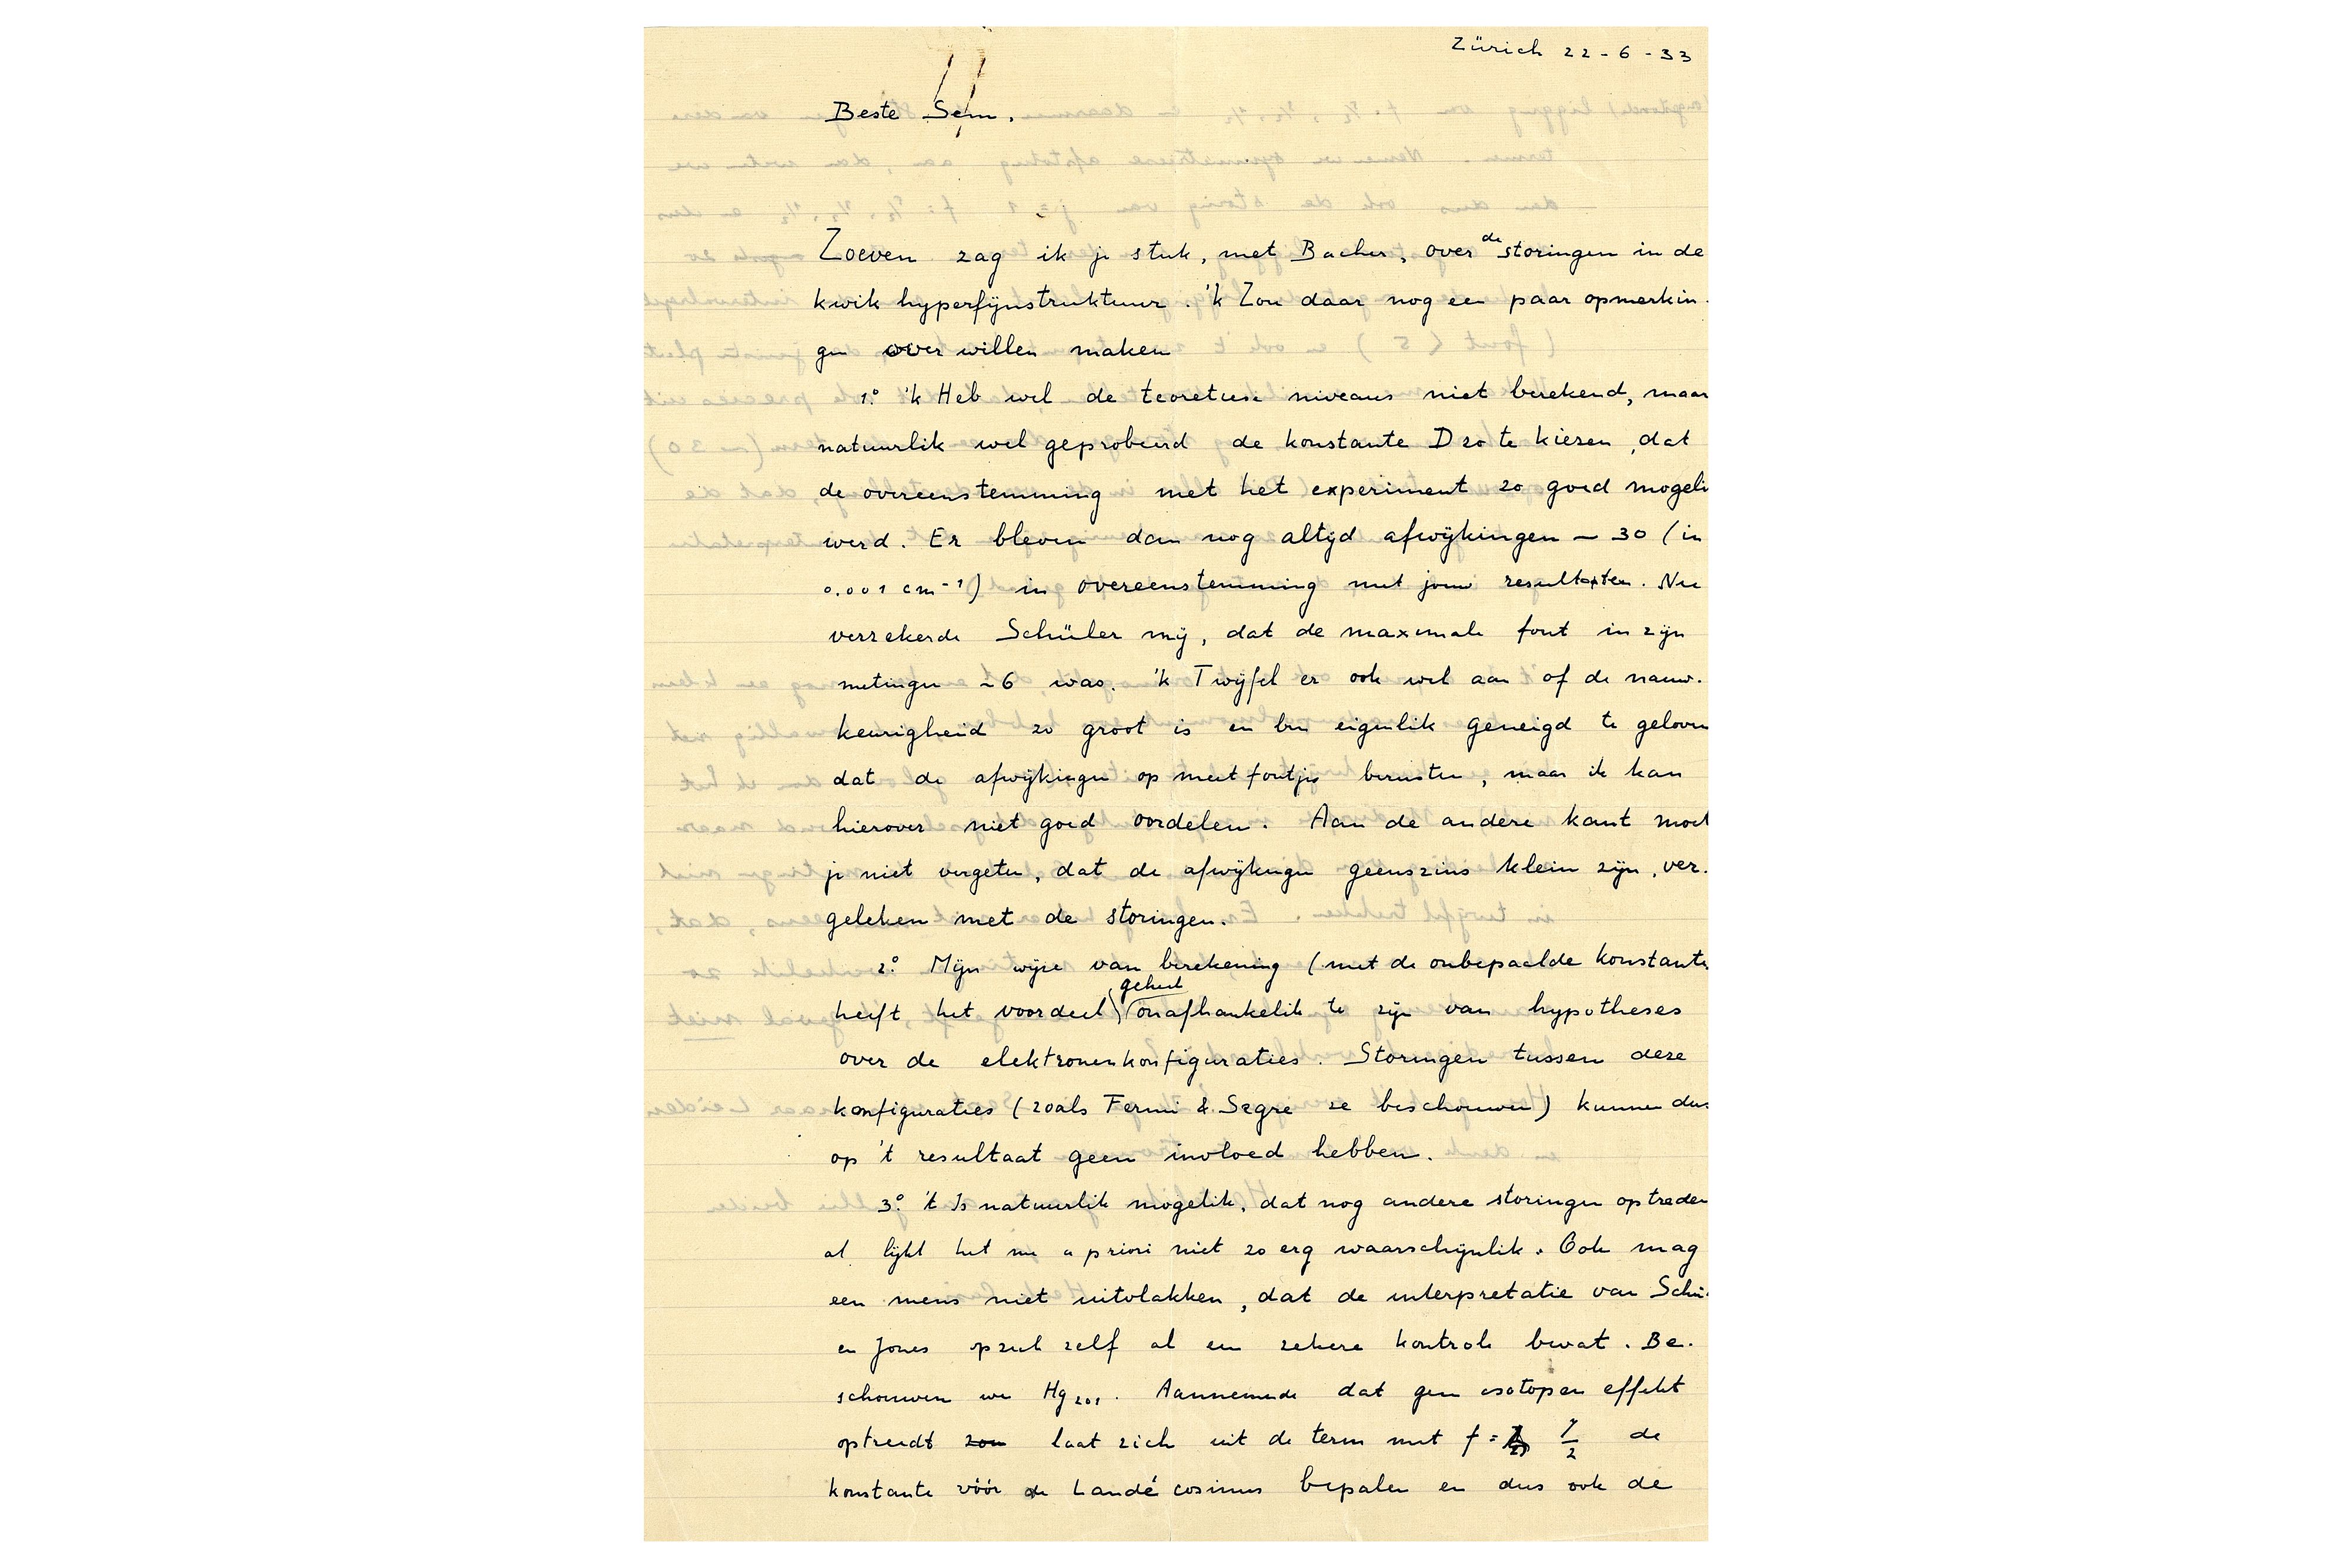 Zürich 22-6-33
Beste Sem.
Zoeven zag ik je stuk, met Bacher, over de storingen in de
kwik hyperfijnstruktuur. 'k Zou daar nog een paar opmerkin-
gen over willen maken
1.° 'k Heb wel de teoretiese niveaus niet berekend, maar
natuurlik wel geprobeerd de konstante D zo te kiezen, dat
de overeenstemming met het experiment zo goed mogeli
werd. Er bleven dan nog altijd afwijkingen ~ 30 (in
0.001 cm⁻¹) in overeenstemming met jouw resultaten. Nu
verzekerde Schüler mij, dat de maximale fout in zijn
metingen ~ 6 was. 'k Twijfel er ook wel aan of de nauw-
keurigheid zo groot is en ben eigenlik geneigd te geloven
dat de afwijkingen op meetfoutjes berusten, maar ik kan
hierover niet goed oordelen. Aan de andere kant moet
je niet vergeten, dat de afwijkingen geenszins klein zijn, ver-
geleken met de storingen.
2.° Mijn wijze van berekening (met de onbepaalde konstante
heeft het voordeel geheel onafhankelik te zijn van hypotheses
over de elektronenkonfiguraties. Storingen tussen deze
konfiguraties (zoals Fermi & Segre ze beschouwen) kunnen dus
op 't resultaat geen invloed hebben.
3.° 't Is natuurlik mogelik, dat nog andere storingen optreden
al lijkt het me a priori niet zo erg waarschijnlik. Ook mag
een mens niet uitvlakken, dat de interpretatie van Schü
en Jones op zich zelf al een zekere kontrole bevat. Be-
schouwen we Hg₂₀₁. Aannemende dat geen isotopen effekt
optreedt zou laat zich uit de term met f = 7/2 de
konstante vóór de Landé cosinus bepalen en dus ook de